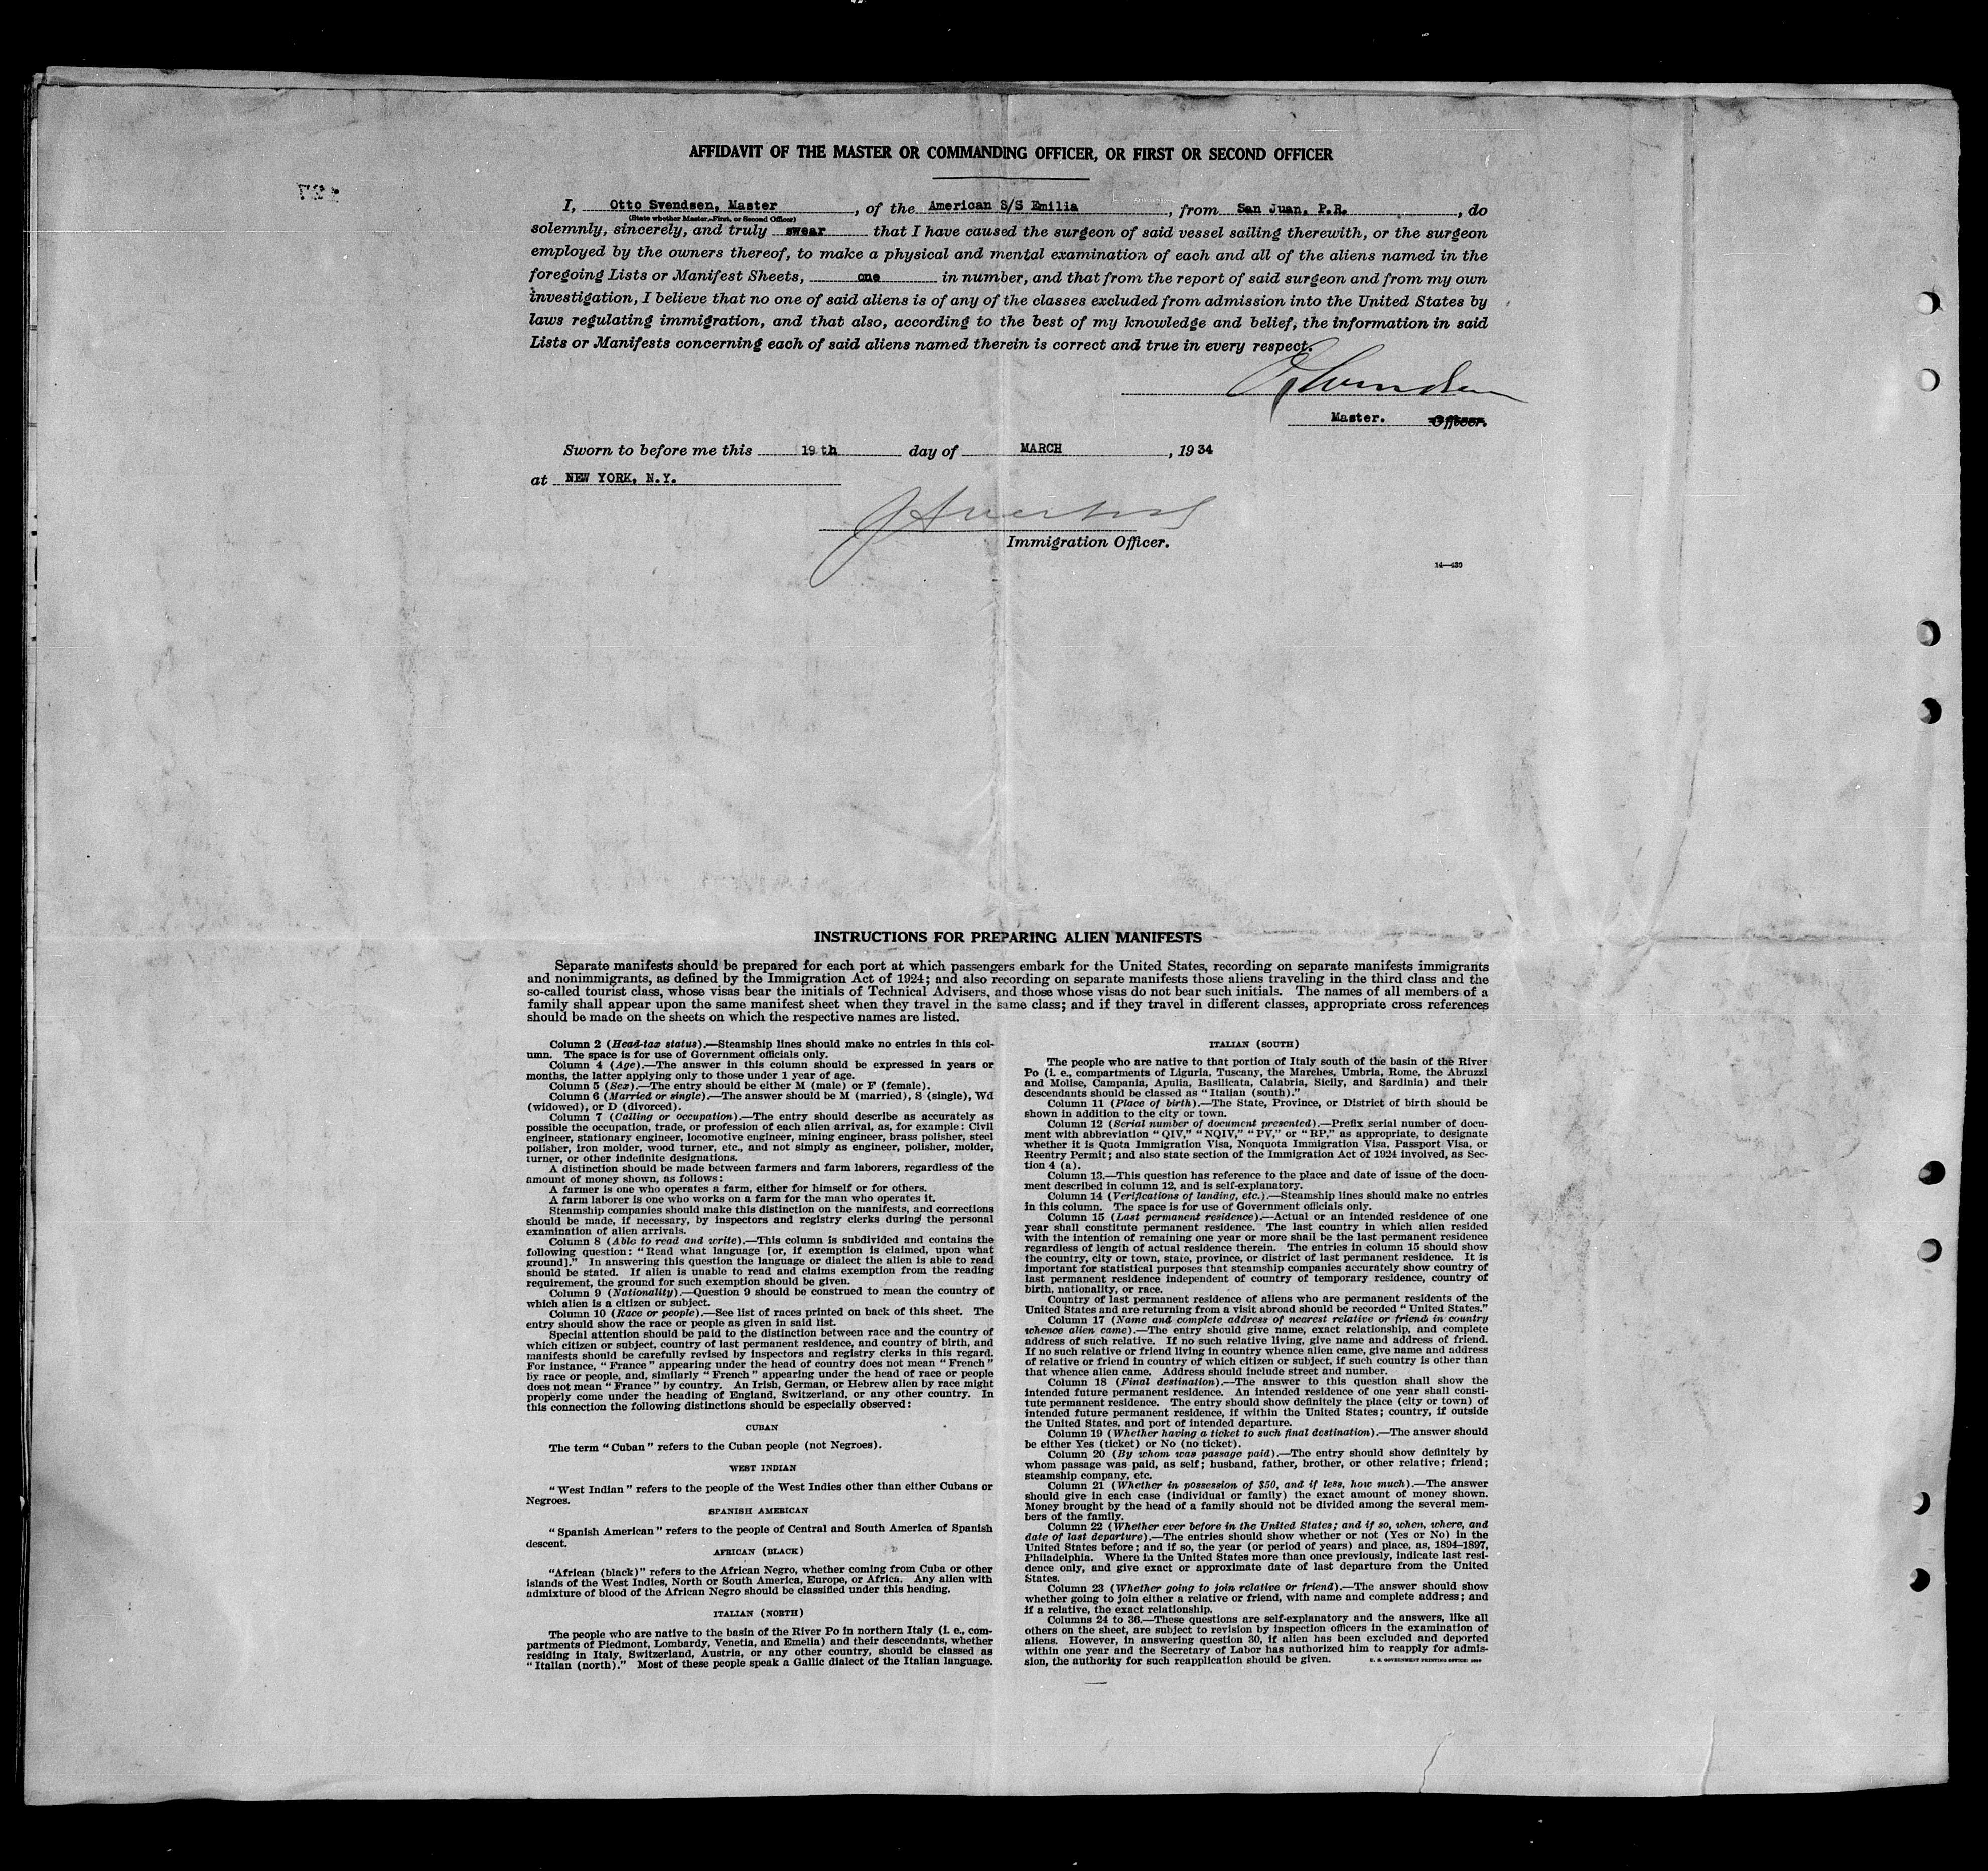 AFFIDAVIT OF THE MASTER OR COMMANDING OFFICER, OR FIRST OR SECOND OFFICER
I, Otto Svendsen, Master, of the American S/S Emilia, from San Juan, P.R., do
(State whether Master, First, or Second Officer)
solemnly, sincerely, and truly swear that I have caused the surgeon of said vessel sailing therewith, or the surgeon
employed by the owners thereof, to make a physical and mental examination of each and all of the aliens named in the
foregoing Lists or Manifest Sheets, one in number, and that from the report of said surgeon and from my own
investigation, I believe that no one of said aliens is of any of the classes excluded from admission into the United States by
laws regulating immigration, and that also, according to the best of my knowledge and belief, the information in said
Lists or Manifests concerning each of said aliens named therein is correct and true in every respect.
Master. Officer.
Sworn to before me this 19th day of MARCH, 1934
at NEW YORK, N.Y.
Immigration Officer.
14—430
INSTRUCTIONS FOR PREPARING ALIEN MANIFESTS
Separate manifests should be prepared for each port at which passengers embark for the United States, recording on separate manifests immigrants
and nonimmigrants, as defined by the Immigration Act of 1924; and also recording on separate manifests those aliens traveling in the third class and the
so-called tourist class, whose visas bear the initials of Technical Advisers, and those whose visas do not bear such initials. The names of all members of a
family shall appear upon the same manifest sheet when they travel in the same class; and if they travel in different classes, appropriate cross references
should be made on the sheets on which the respective names are listed.
Column 2 (Head-tax status).—Steamship lines should make no entries in this col-
umn. The space is for use of Government officials only.
Column 4 (Age).—The answer in this column should be expressed in years or
months, the latter applying only to those under 1 year of age.
Column 5 (Sex).—The entry should be either M (male) or F (female).
Column 6 (Married or single).—The answer should be M (married), S (single), Wd
(widowed), or D (divorced).
Column 7 (Calling or occupation).—The entry should describe as accurately as
possible the occupation, trade, or profession of each alien arrival, as, for example: Civil
engineer, stationary engineer, locomotive engineer, mining engineer, brass polisher, steel
polisher, iron molder, wood turner, etc., and not simply as engineer, polisher, molder,
turner, or other indefinite designations.
A distinction should be made between farmers and farm laborers, regardless of the
amount of money shown, as follows:
A farmer is one who operates a farm, either for himself or for others.
A farm laborer is one who works on a farm for the man who operates it.
Steamship companies should make this distinction on the manifests, and corrections
should be made, if necessary, by inspectors and registry clerks during the personal
examination of alien arrivals.
Column 8 (Able to read and write).—This column is subdivided and contains the
following question: "Read what language [or, if exemption is claimed, upon what
ground]." In answering this question the language or dialect the alien is able to read
should be stated. If alien is unable to read and claims exemption from the reading
requirement, the ground for such exemption should be given.
Column 9 (Nationality).—Question 9 should be construed to mean the country of
which alien is a citizen or subject.
Column 10 (Race or people).—See list of races printed on back of this sheet. The
entry should show the race or people as given in said list.
Special attention should be paid to the distinction between race and the country of
which citizen or subject, country of last permanent residence, and country of birth, and
manifests should be carefully revised by inspectors and registry clerks in this regard.
For instance, "France" appearing under the head of country does not mean "French"
by race or people, and, similarly "French" appearing under the head of race or people
does not mean "France" by country. An Irish, German, or Hebrew alien by race might
properly come under the heading of England, Switzerland, or any other country. In
this connection the following distinctions should be especially observed:
CUBAN
The term "Cuban" refers to the Cuban people (not Negroes).
WEST INDIAN
"West Indian" refers to the people of the West Indies other than either Cubans or
Negroes.
SPANISH AMERICAN
"Spanish American" refers to the people of Central and South America of Spanish
descent.
AFRICAN (BLACK)
"African (black)" refers to the African Negro, whether coming from Cuba or other
islands of the West Indies, North or South America, Europe, or Africa. Any alien with
admixture of blood of the African Negro should be classified under this heading.
ITALIAN (NORTH)
The people who are native to the basin of the River Po in northern Italy (i. e., com-
partments of Piedmont, Lombardy, Venetia, and Emelia) and their descendants, whether
residing in Italy, Switzerland, Austria, or any other country, should be classed as
"Italian (north)." Most of these people speak a Gallic dialect of the Italian language.
ITALIAN (SOUTH)
The people who are native to that portion of Italy south of the basin of the River
Po (i. e., compartments of Liguria, Tuscany, the Marches, Umbria, Rome, the Abruzzi
and Molise, Campania, Apulia, Basilicata, Calabria, Sicily, and Sardinia) and their
descendants should be classed as "Italian (south)."
Column 11 (Place of birth).—The State, Province, or District of birth should be
shown in addition to the city or town.
Column 12 (Serial number of document presented).—Prefix serial number of docu-
ment with abbreviation "QIV," "NQIV," "PV," or "RP," as appropriate, to designate
whether it is Quota Immigration Visa, Nonquota Immigration Visa, Passport Visa, or
Reentry Permit; and also state section of the Immigration Act of 1924 involved, as Sec-
tion 4 (a).
Column 13.—This question has reference to the place and date of issue of the docu-
ment described in column 12, and is self-explanatory.
Column 14 (Verifications of landing, etc.).—Steamship lines should make no entries
in this column. The space is for use of Government officials only.
Column 15 (Last permanent residence).—Actual or an intended residence of one
year shall constitute permanent residence. The last country in which alien resided
with the intention of remaining one year or more shall be the last permanent residence
regardless of length of actual residence therein. The entries in column 15 should show
the country, city or town, state, province, or district of last permanent residence. It is
important for statistical purposes that steamship companies accurately show country of
last permanent residence independent of country of temporary residence, country of
birth, nationality, or race.
Country of last permanent residence of aliens who are permanent residents of the
United States and are returning from a visit abroad should be recorded "United States."
Column 17 (Name and complete address of nearest relative or friend in country
whence alien came).—The entry should give name, exact relationship, and complete
address of such relative. If no such relative living, give name and address of friend.
If no such relative or friend living in country whence alien came, give name and address
of relative or friend in country of which citizen or subject, if such country is other than
that whence alien came. Address should include street and number.
Column 18 (Final destination).—The answer to this question shall show the
intended future permanent residence. An intended residence of one year shall consti-
tute permanent residence. The entry should show definitely the place (city or town) of
intended future permanent residence, if within the United States; country, if outside
the United States, and port of intended departure.
Column 19 (Whether having a ticket to such final destination).—The answer should
be either Yes (ticket) or No (no ticket).
Column 20 (By whom was passage paid).—The entry should show definitely by
whom passage was paid, as self; husband, father, brother, or other relative; friend;
steamship company, etc.
Column 21 (Whether in possession of $50, and if less, how much).—The answer
should give in each case (individual or family) the exact amount of money shown.
Money brought by the head of a family should not be divided among the several mem-
bers of the family.
Column 22 (Whether ever before in the United States; and if so, when, where, and
date of last departure).—The entries should show whether or not (Yes or No) in the
United States before; and if so, the year (or period of years) and place, as, 1894–1897,
Philadelphia. Where in the United States more than once previously, indicate last resi-
dence only, and give exact or approximate date of last departure from the United
States.
Column 23 (Whether going to join relative or friend).—The answer should show
whether going to join either a relative or friend, with name and complete address; and
if a relative, the exact relationship.
Columns 24 to 36.—These questions are self-explanatory and the answers, like all
others on the sheet, are subject to revision by inspection officers in the examination of
aliens. However, in answering question 30, if alien has been excluded and deported
within one year and the Secretary of Labor has authorized him to reapply for admis-
sion, the authority for such reapplication should be given. U. S. GOVERNMENT PRINTING OFFICE: